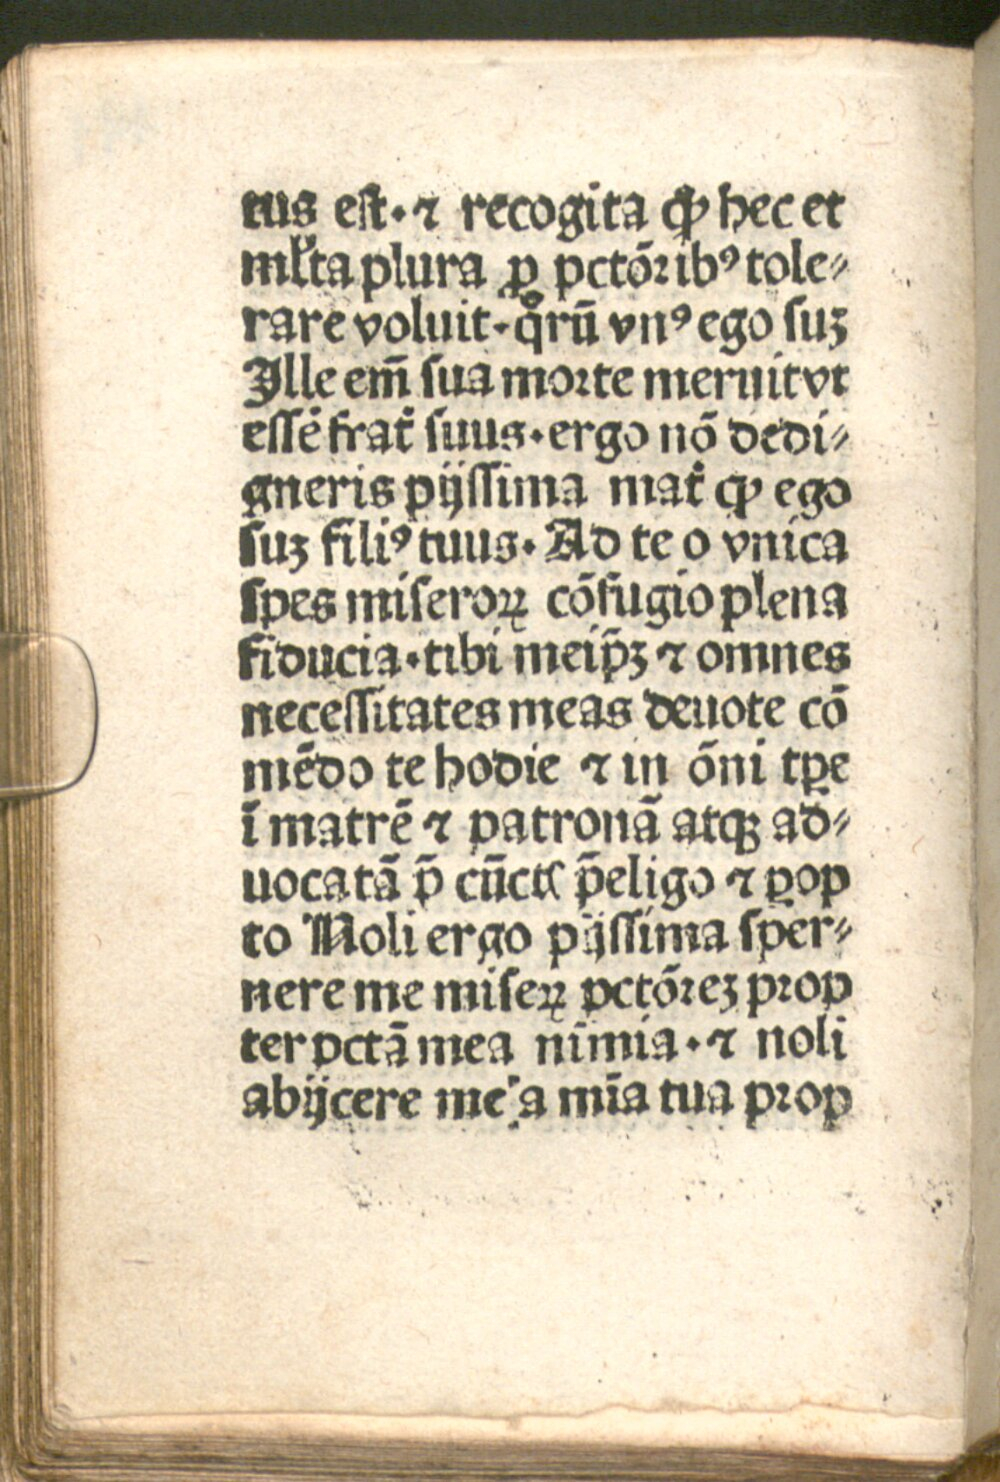 tus est· ⁊ recogita ꝙ hec et
ml̓ta plura ꝓ pctōꝛibꝰ tole⸗
rare voluit·qͦrū vnꝰ ego suꝫ
Ille em̄ sua moꝛte meruit vt
essē frat̓ suus·ergo nō dedi⸗
gneris pijssima mat̓ ꝙ ego
suꝫ filiꝰ tuus·Ad te o vnica
spes miseroꝝ cōfugio plena
fiducia·tibi meip̄ꝫ ⁊ omnes
necessitates meas deuote cō
mēdo te hodie ⁊ in ōni tꝑe
ī matrē ⁊ patronā atqꝫ ad⸗
uocatā p̄ cūctꝭ p̄eligo ⁊ ꝓop
to Noli ergo pijssima sper⸗
nere me miseꝝ pctōꝛeꝫ pꝛop
ter pctā mea nimia·⁊ noli
abijcere me a mīa tua pꝛop